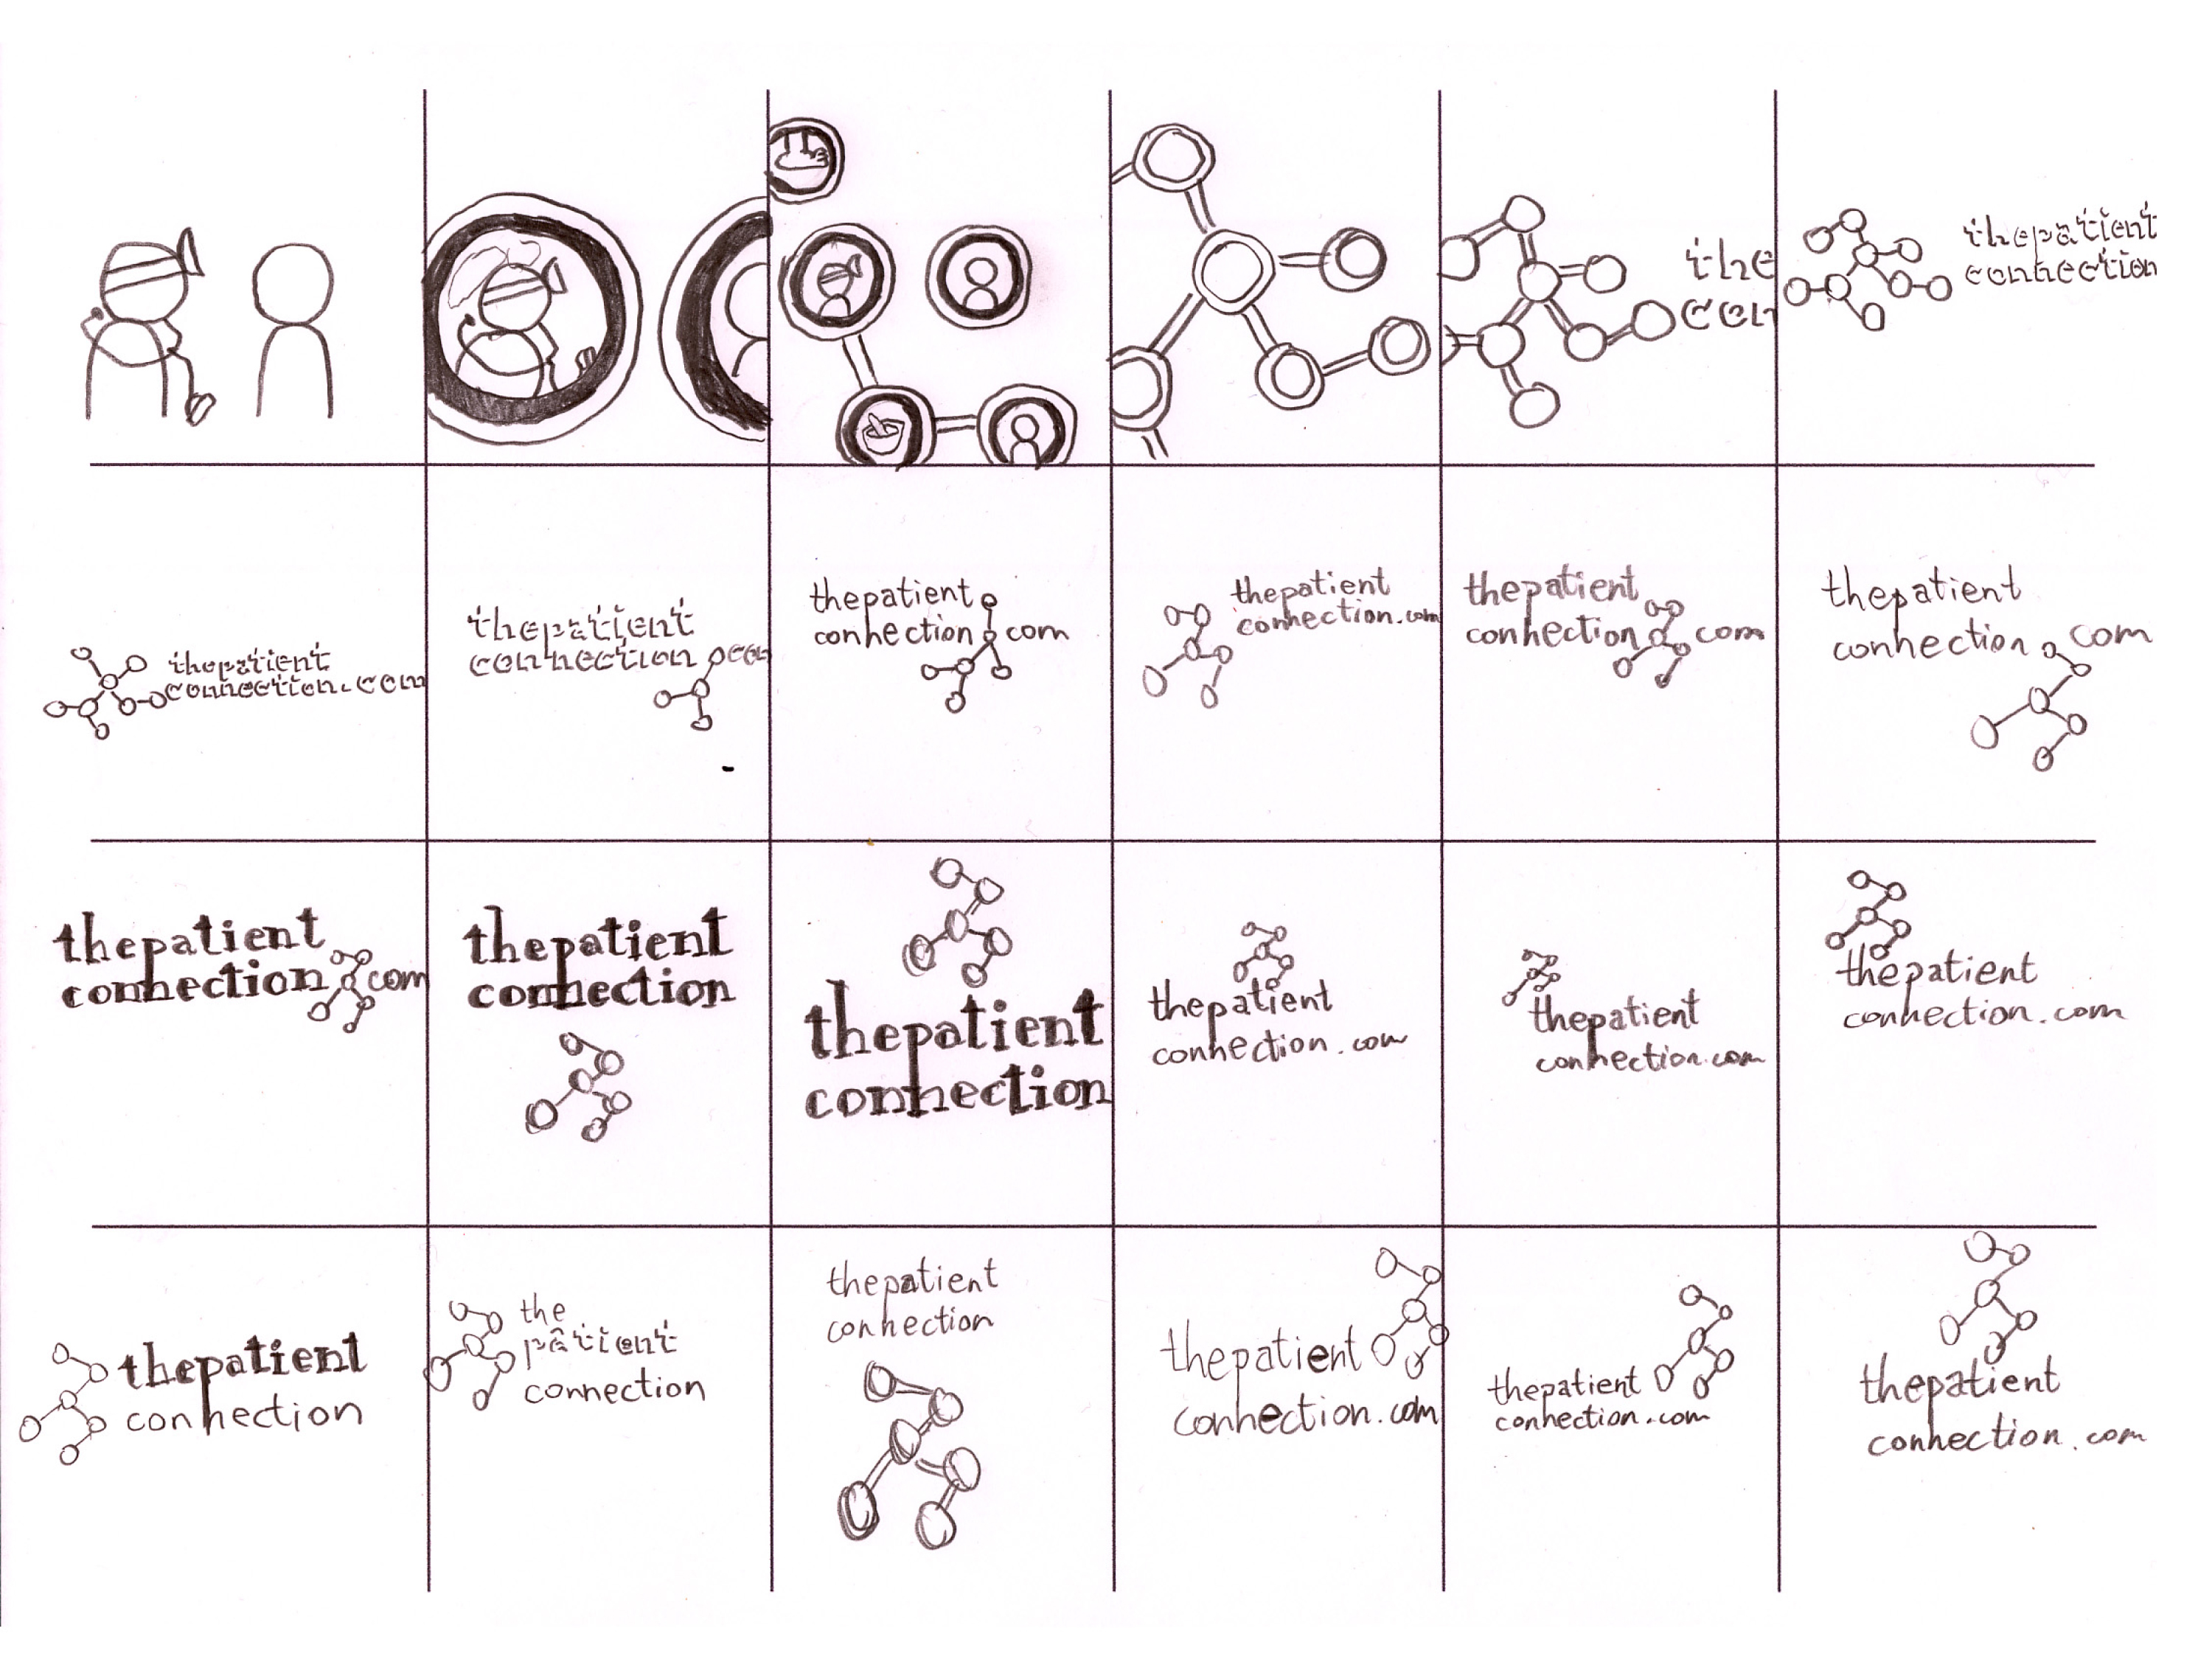 the
con
thepatient
connection
thepatient
connection.com
thepatient
connection com
thepatient
connection com
thepatient
connection.com
thepatient
connection com
thepatient
connection com
thepatient
connection com
thepatient
connection
thepatient
connection
thepatient
connection.com
thepatient
connection.com
thepatient
connection.com
thepatient
connection
the
patient
connection
thepatient
connection
thepatient
connection.com
thepatient
connection.com
thepatient
connection.com